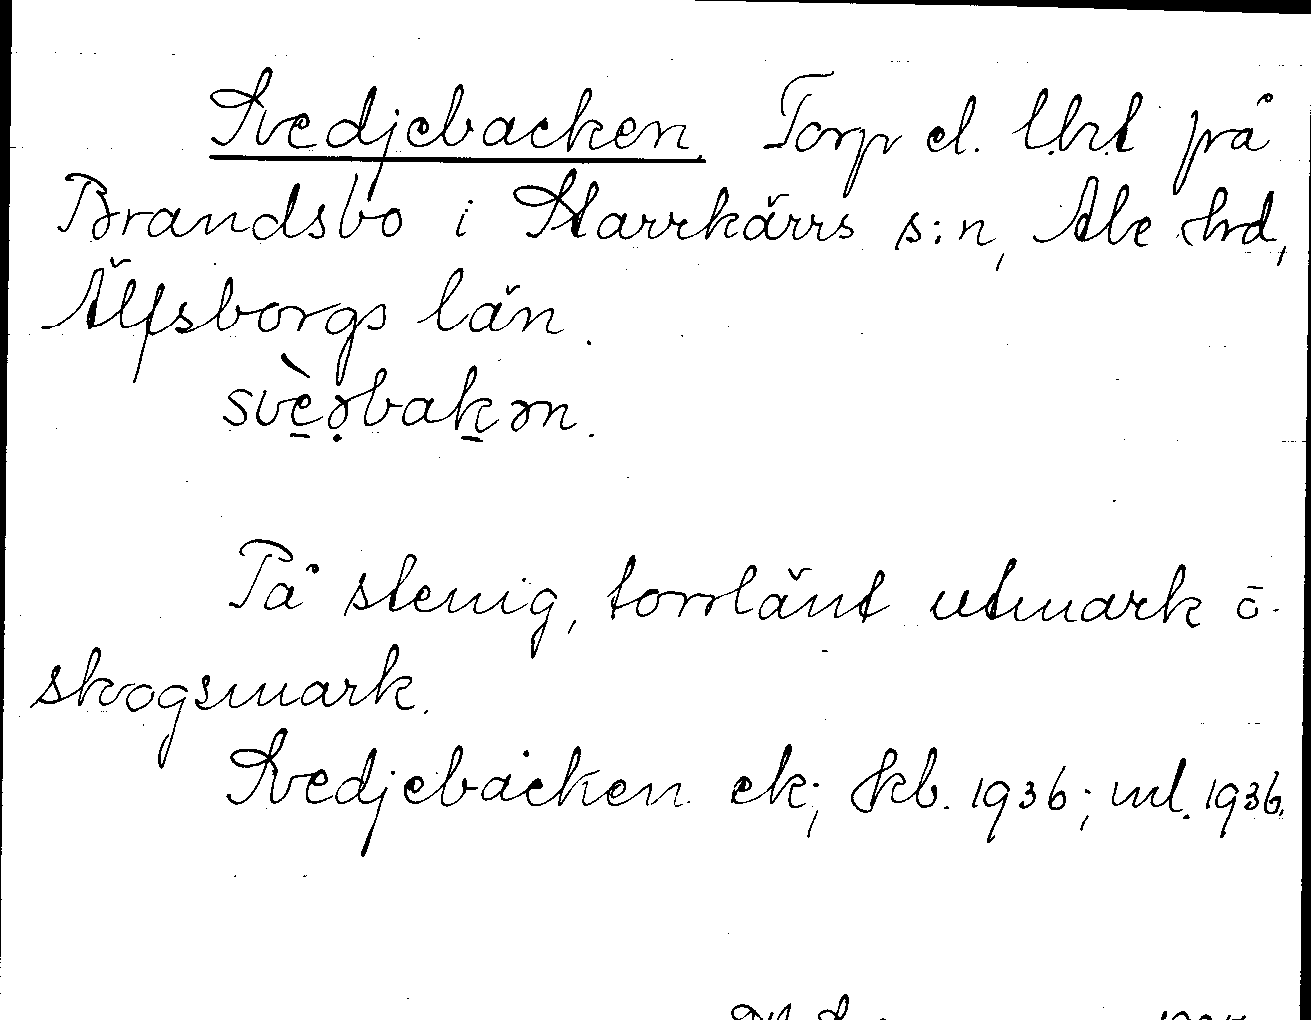 Svedjebacken Torp el. lht på
Brandsbo i Starrkärrs s:n, Ale hd,
Älfsborgs län.
svèə̣bakən.
På stenig, torrlänt utmark o.
skogsmark.
Svedjebacken ek; Jkb. 1936; ml. 1936.